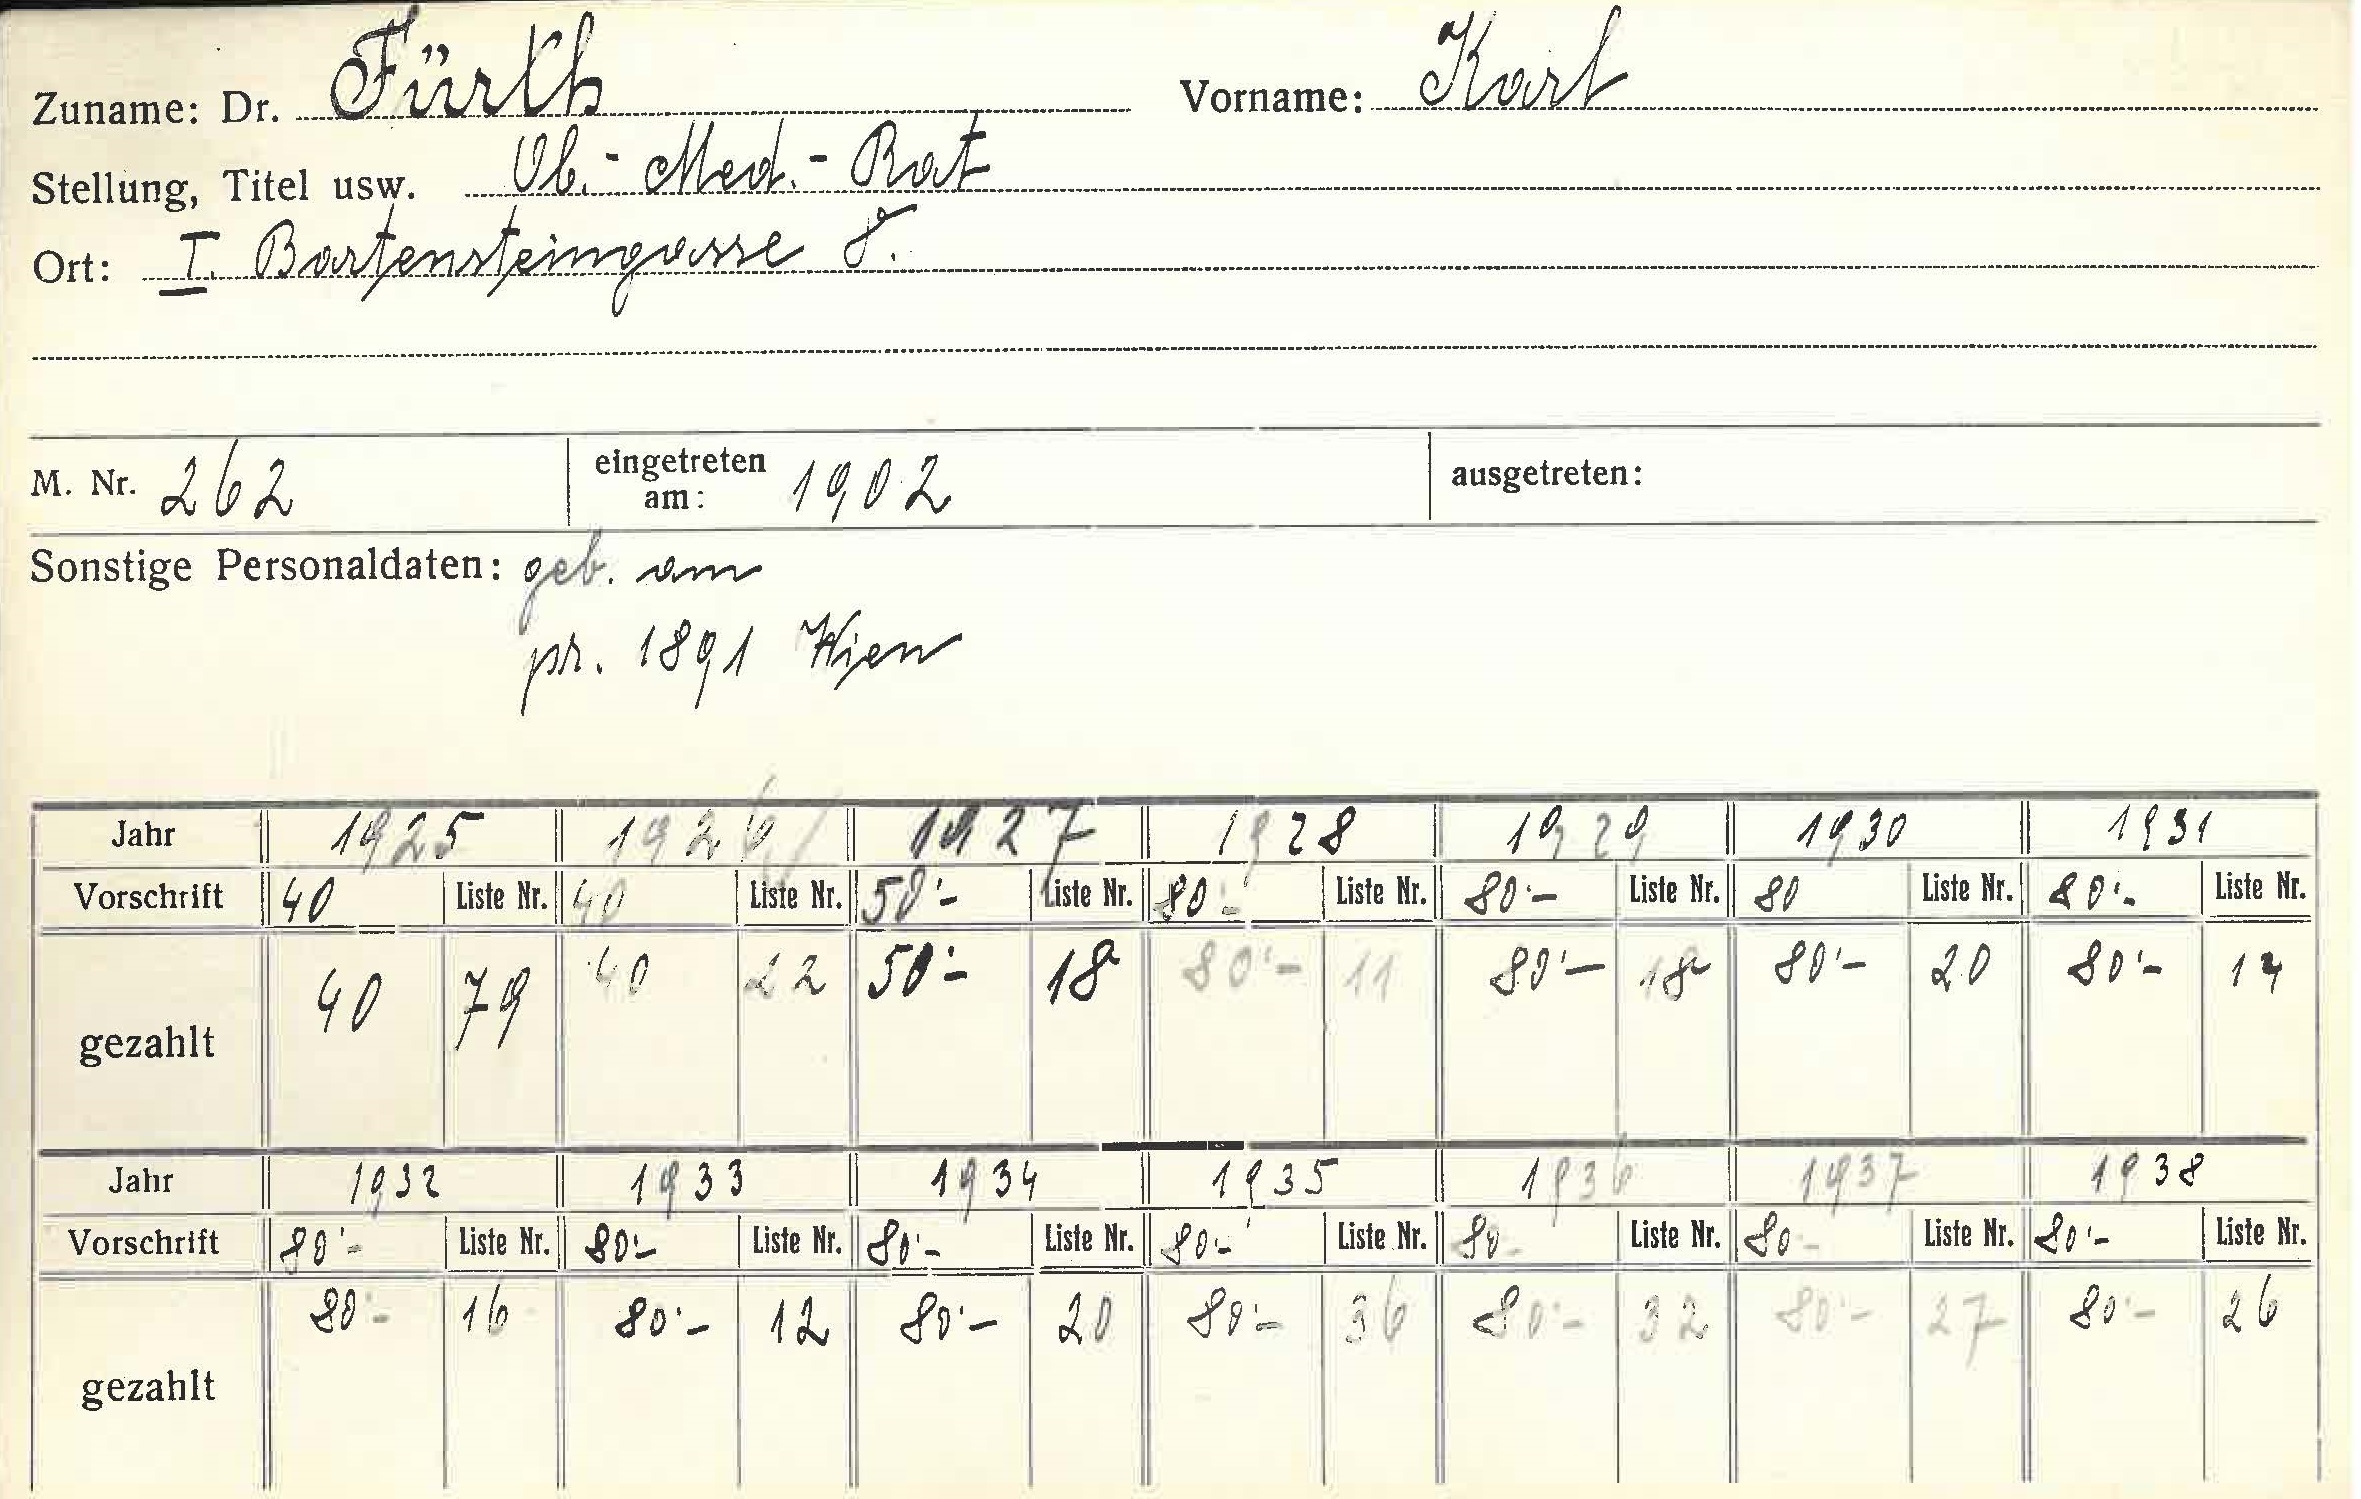 Zuname: Dr. Fürth Vorname: Karl
Stellung, Titel usw. Ob.-Med.-Rat
Ort: I. Bartensteingasse 8.
M. Nr. 262 eingetreten am: 1902 ausgetreten:
Sonstige Personaldaten: geb. am
pr. 1891 Wien
Jahr 1925 1926 1927 1928 1929 1930 1931
Vorschrift 40 Liste Nr. 40 Liste Nr. 50'- Liste Nr. 80'- Liste Nr. 80'- Liste Nr. 80 Liste Nr. 80'- Liste Nr.
gezahlt 40 79 40 22 50'- 18 80'- 11 80'- 18 80'- 20 80'- 14
Jahr 1932 1933 1934 1935 1936 1937 1938
Vorschrift 80'- Liste Nr. 80'- Liste Nr. 80'- Liste Nr. 80'- Liste Nr. 80- Liste Nr. 80- Liste Nr. 80'- Liste Nr.
gezahlt 80'- 16 80'- 12 80'- 20 80'- 36 80'- 32 80'- 27 80'- 26